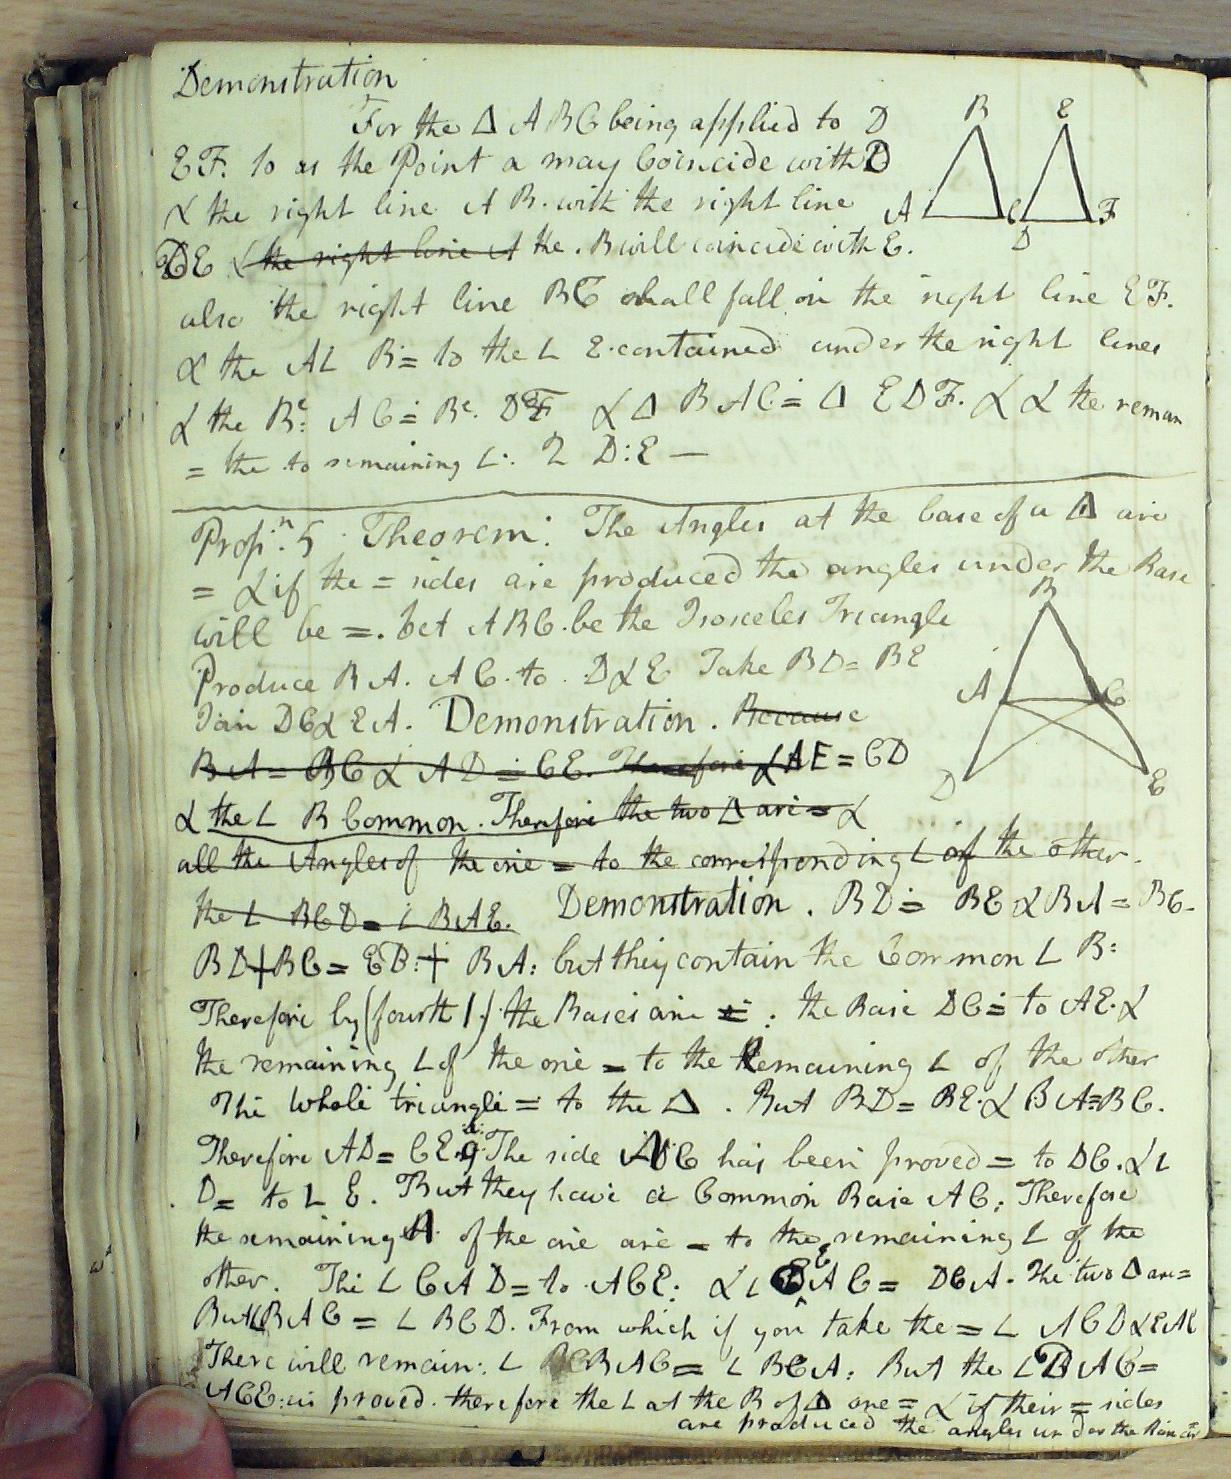 Demonstration
For the Δ ABC being applied to D
EF. so as the Point a may Coincide with D
& the right line AB. with the right line
DE & the right line A the . B will coincide with E.
also the right line BC shall fall on the right line EF.
& the AL B = to the L E. contained under the right lines
& the Be: AC = Be. DF & Δ BAC = Δ EDF. & & the reman
= the to remaining L: 2 D:E —
B E
A C D F
Propn. 5 Theorem: The Angles at the base of a Δ are
= & if the = sides are produced the angles under the Base
will be =. Let ABC. be the Isosceles Triangle
Produce BA. AC. to . D & E Take BD = BE
Join DC & EA. Demonstration. Because
BA = BC & AD = CE. Therefore & AE = CD
& the L B Common. Therefore the two Δ are = &
all the Angles of the one = to the corresponding L of the other.
the L BCD = L BAE. Demonstration. BD = BE & BA = BC-
B
A C
D E
BD + BC = EB: + BA: but they contain the Common L B:
Therefore by (fourth 1.) the Bases are = : the Base DC = to AE. &
the remaining L of the one = to the Remaining L of the other
The Whole triangle = to the Δ . But BD = BE. & BA = BC.
Therefore AD = CE. The side has been proved = to DC. & L
D = to L E. But they have a Common Base AC; Therefore
the remaining of the one are = to the remaining L of the
other. The L CAD = to ACE: & L EAC = DCA. The two Δ are =
But L BAC = L BCD. From which if you take the = L ACD & EAC
There will remain: L BAC = L BCA: But the L DAC =
ACE: is proved. therefore the L at the B of Δ are = & if their = sides
are produced the angles under the Base are